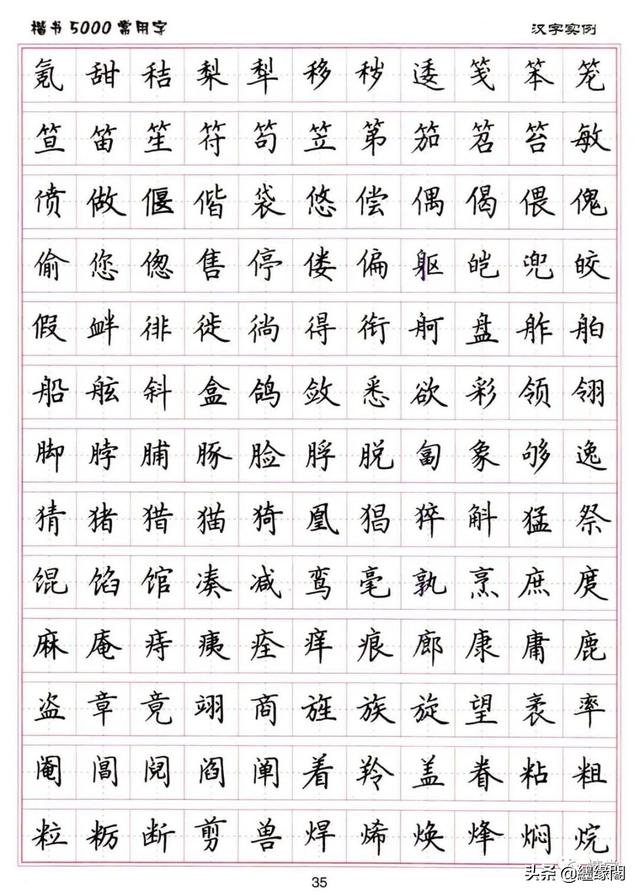 楷书5000常用字 汉字实例
氪 甜 秸 梨 犁 移 秽 逶 笺 笨 笼
笪 笛 笙 符 笱 笠 第 笳 笤 笞 敏
偾 做 偃 偕 袋 悠 偿 偶 偈 偎 傀
偷 您 偬 售 停 偻 偏 躯 皑 兜 皎
假 衅 徘 徙 徜 得 衔 舸 盘 舴 舶
船 舷 斜 盒 鸽 敛 悉 欲 彩 领 翎
脚 脖 脯 豚 脸 脬 脱 匐 象 够 逸
猜 猪 猎 猫 猗 凰 猖 猝 斛 猛 祭
馄 馅 馆 凑 减 鸾 毫 孰 烹 庶 庹
麻 庵 痔 痍 痊 痒 痕 廊 康 庸 鹿
盗 章 竟 翊 商 旌 族 旋 望 袤 率
阉 阊 阋 阎 阐 着 羚 盖 眷 粘 粗
粒 粝 断 剪 兽 焊 烯 焕 烽 焖 烷
35
头条 @纏缘閣